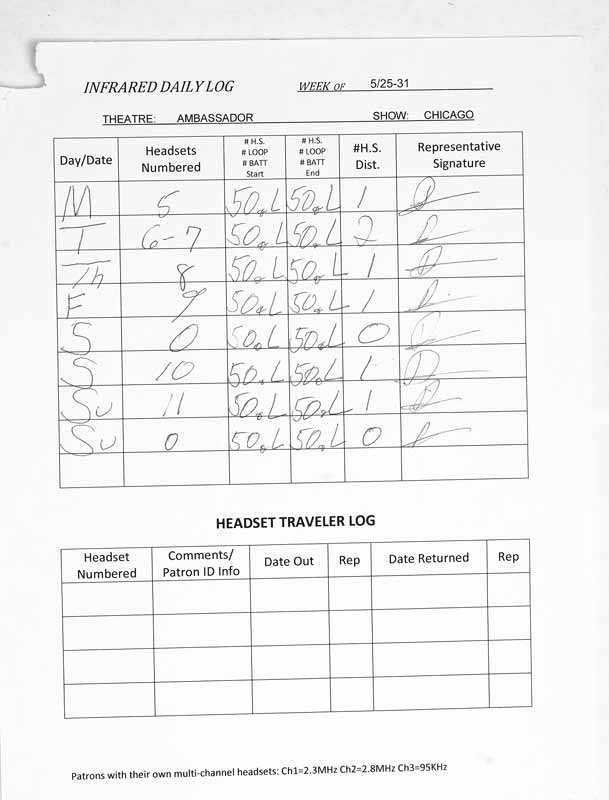 INFRARED DAILY LOG WEEK OF 5/25-31
THEATRE: AMBASSADOR SHOW: CHICAGO
Day/Date Headsets Numbered # H.S. # LOOP # BATT Start # H.S. # LOOP # BATT End #H.S. Dist. Representative Signature
M 5 50 L 50 L 1
T 6-7 50 L 50 L 2
Th 8 50 L 50 L 1
F 9 50 L 50 L 1
S 0 50 L 50 L 0
S 10 50 L 50 L 1
Su 11 50 L 50 L 1
Su 0 50 L 50 L 0
HEADSET TRAVELER LOG
Headset Numbered Comments/ Patron ID Info Date Out Rep Date Returned Rep
Patrons with their own multi-channel headsets: Ch1=2.3MHz Ch2=2.8MHz Ch3=95KHz